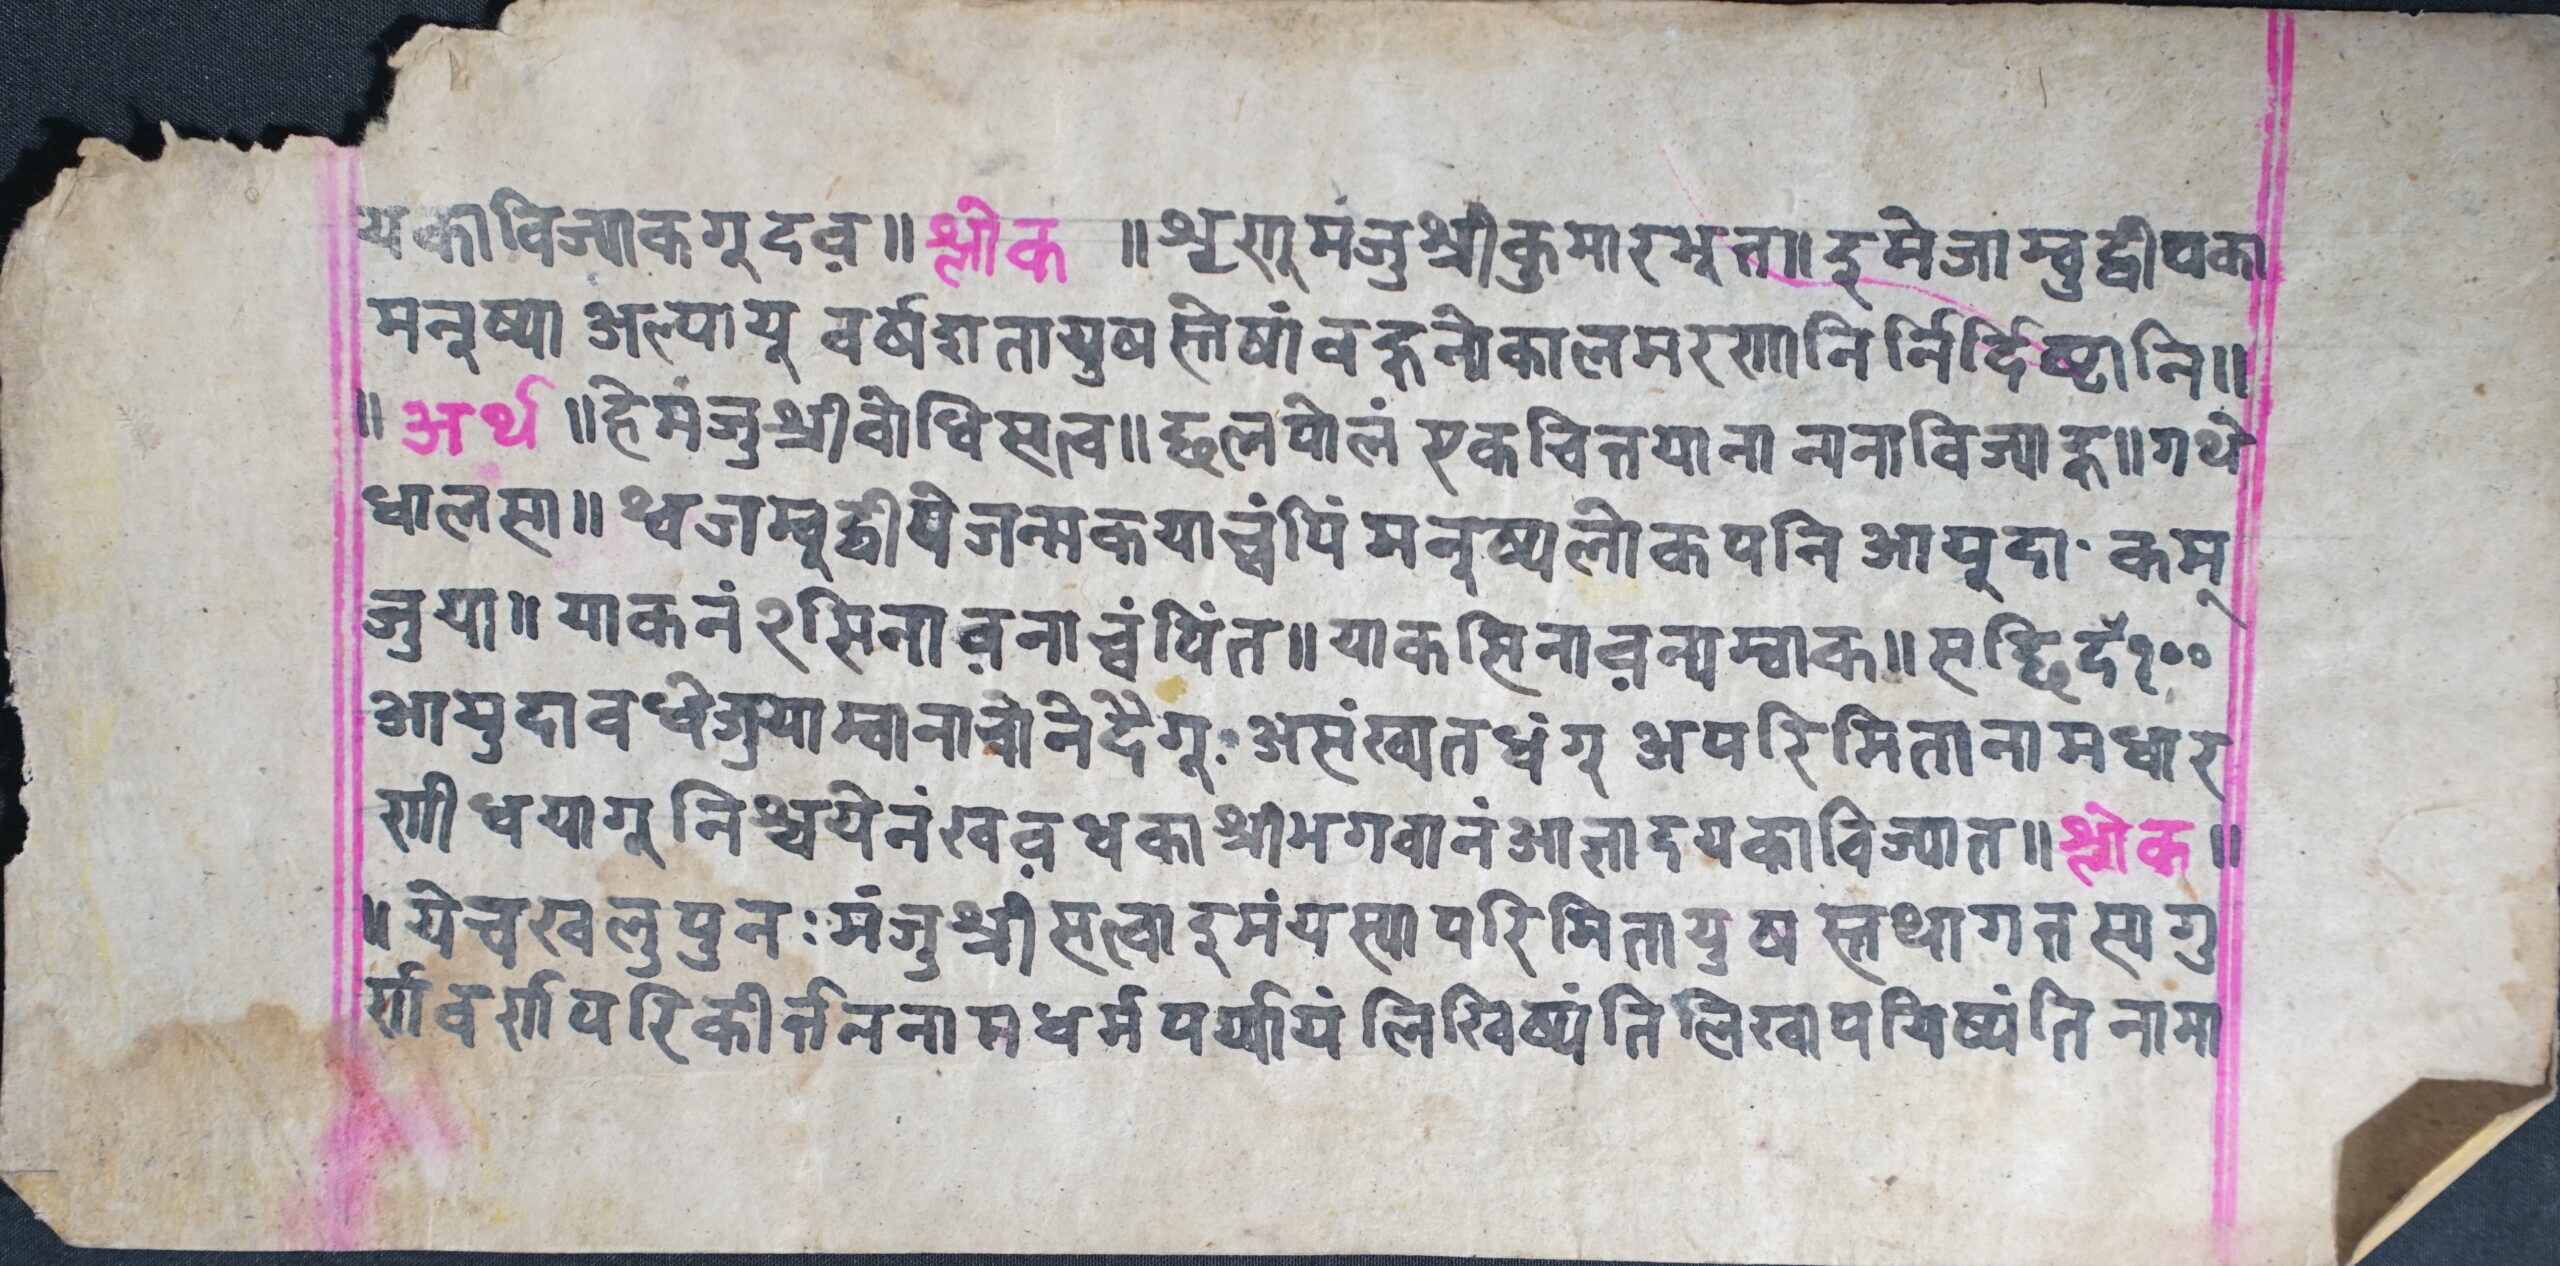 यकाविज्याकगू दव़॥ श्लोक ॥ श्रृणूमंजुश्रीकुमारभूत॥ इमेजाम्बुद्वीपका
मनूष्या अल्पायू वर्षशतायुष स्तेषां वह्कन्येकालमरणानि र्निर्दिष्टानि॥
॥ अर्थ ॥हेमंजुश्रीवोधिसत्व॥ छलपोलं एकचित्तयाना न्यनाविज्याहु॥ गथे
धालसा॥ थ्वजम्बूद्वीपे जन्मकयाच्वंपिं मनूष्यलोकपनि आयूदा॰ कम्
जुया॥ याकनं २ सिनाव़नाच्वंपिंत॥ याकसिनाव़न्यम्वाक॥ सच्छिदँ १००
आयुदावध्वेजुयाम्वानाच्वोनेदैगू॰ असंख्यातधंगू अपरिमितानामधार
णी धयागू निश्चयेनंखव़ धका श्रीभगवानंआज्ञादयकाविज्यात॥ श्लोक॥
॥ येचखलुपुनः मंजुश्री सत्वाइमंयस्यापरिमितायुष स्तथागतस्यगु
र्णावर्णापरिकीर्त्तननामधर्मपर्य्यायं लिखिष्यंति लिखापयिष्यंति नामा